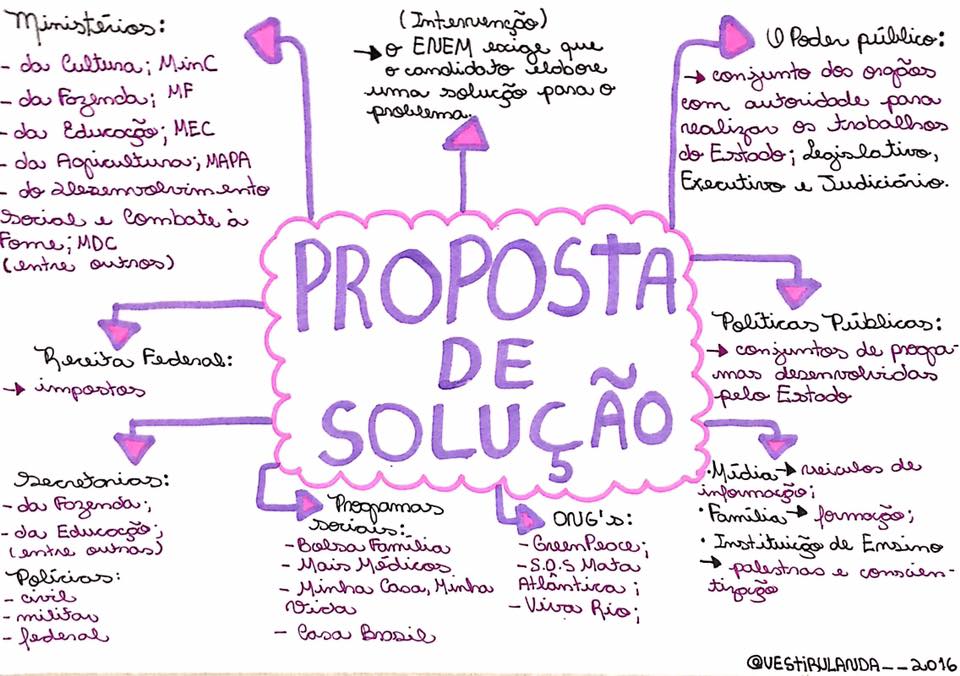 Ministérios:
- da Cultura; MinC
- da Fazenda; MF
- da Educação; MEC
- da Agricultura; MAPA
- do Desenvolvimento
Social e Combate à
Fome; MDC
(entre outros)
(Intervenção)
→ o ENEM exige que
o candidato elabore
uma solução para o
problema.
O Poder público:
→ conjunto dos orgãos
com autoridade para
realizar os trabalhos
do Estado; Legislativo,
Executivo e Judiciário.
PROPOSTA
DE
SOLUÇÃO
Receita Federal:
→ impostos
Políticas Públicas:
→ conjuntos de progra-
mas desenvolvidas
pelo Estado
Secretarias:
- da Fazenda;
- da Educação;
(entre outras)
Polícias:
- civil
- militar
- federal
Programas
sociais:
- Bolsa Família
- Mais Médicos
- Minha Casa, Minha
Vida
- Casa Brasil
ONG's:
- GreenPeace;
- S.O.S Mata
Atlântica;
- Viva Rio;
• Mídia → veículos de
informação;
• Família → formação;
• Instituição de Ensino
→ palestras e conscien-
tização
@VESTIBULANDA__2016